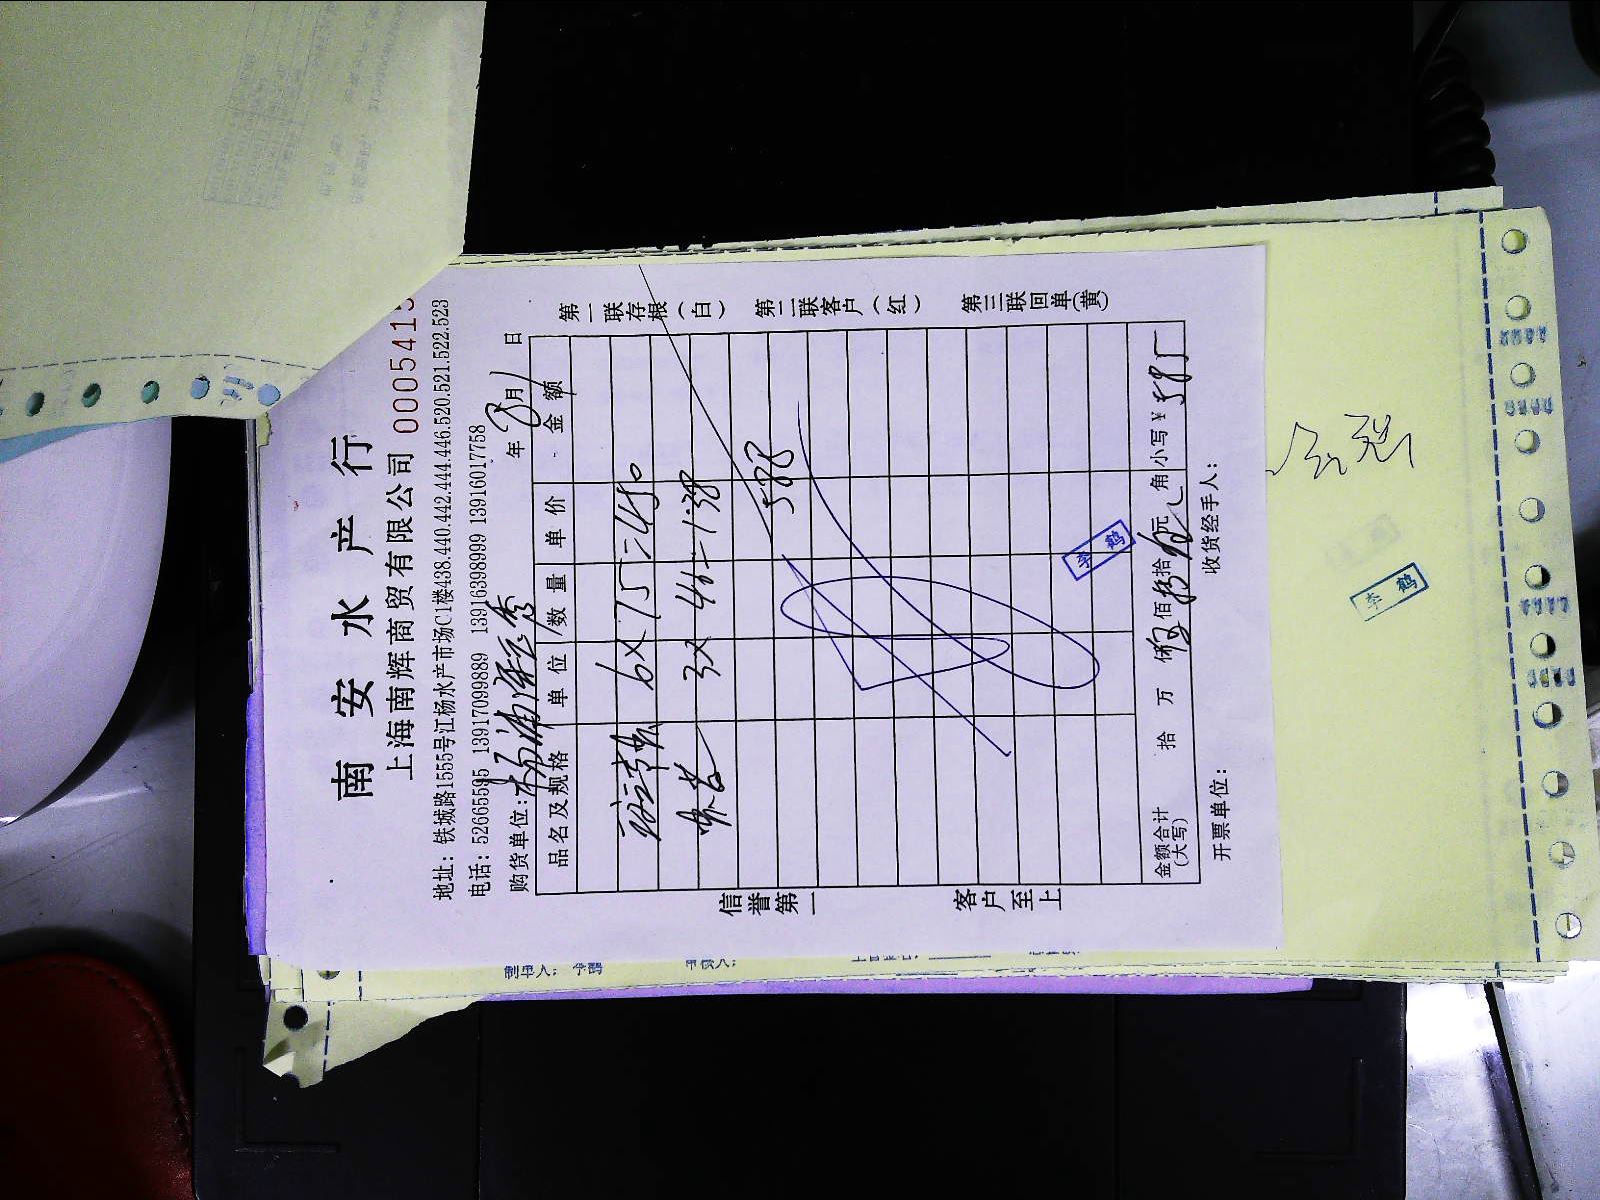 南安水产行
上海南辉商贸有限公司 000541
地址: 铁城路1555号江杨水产市场C1楼438.440.442.444.446.520.521.522.523
电话: 52665595 13917099889 13916398999 13916017758
购货单位: 杨浦 年 8月 日
品名及规格 单位 数量 单价 金额
6×75=450
3×46=138
588
金额合计(大写) 拾 万 仟 伍佰 拾 元 角 小写¥ 588
开票单位: 收货经手人:
第一联存根(白) 第二联客户(红) 第三联回单(黄)
信誉第一 客户至上
李鹤
李鹤
制单人: 李鹤
审核人: